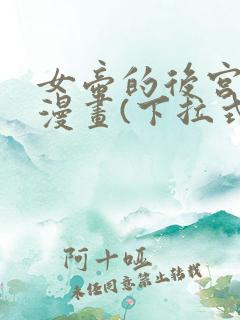 女帝的後宮
漫畫(下拉式
阿十啞
未經同意禁止轉載